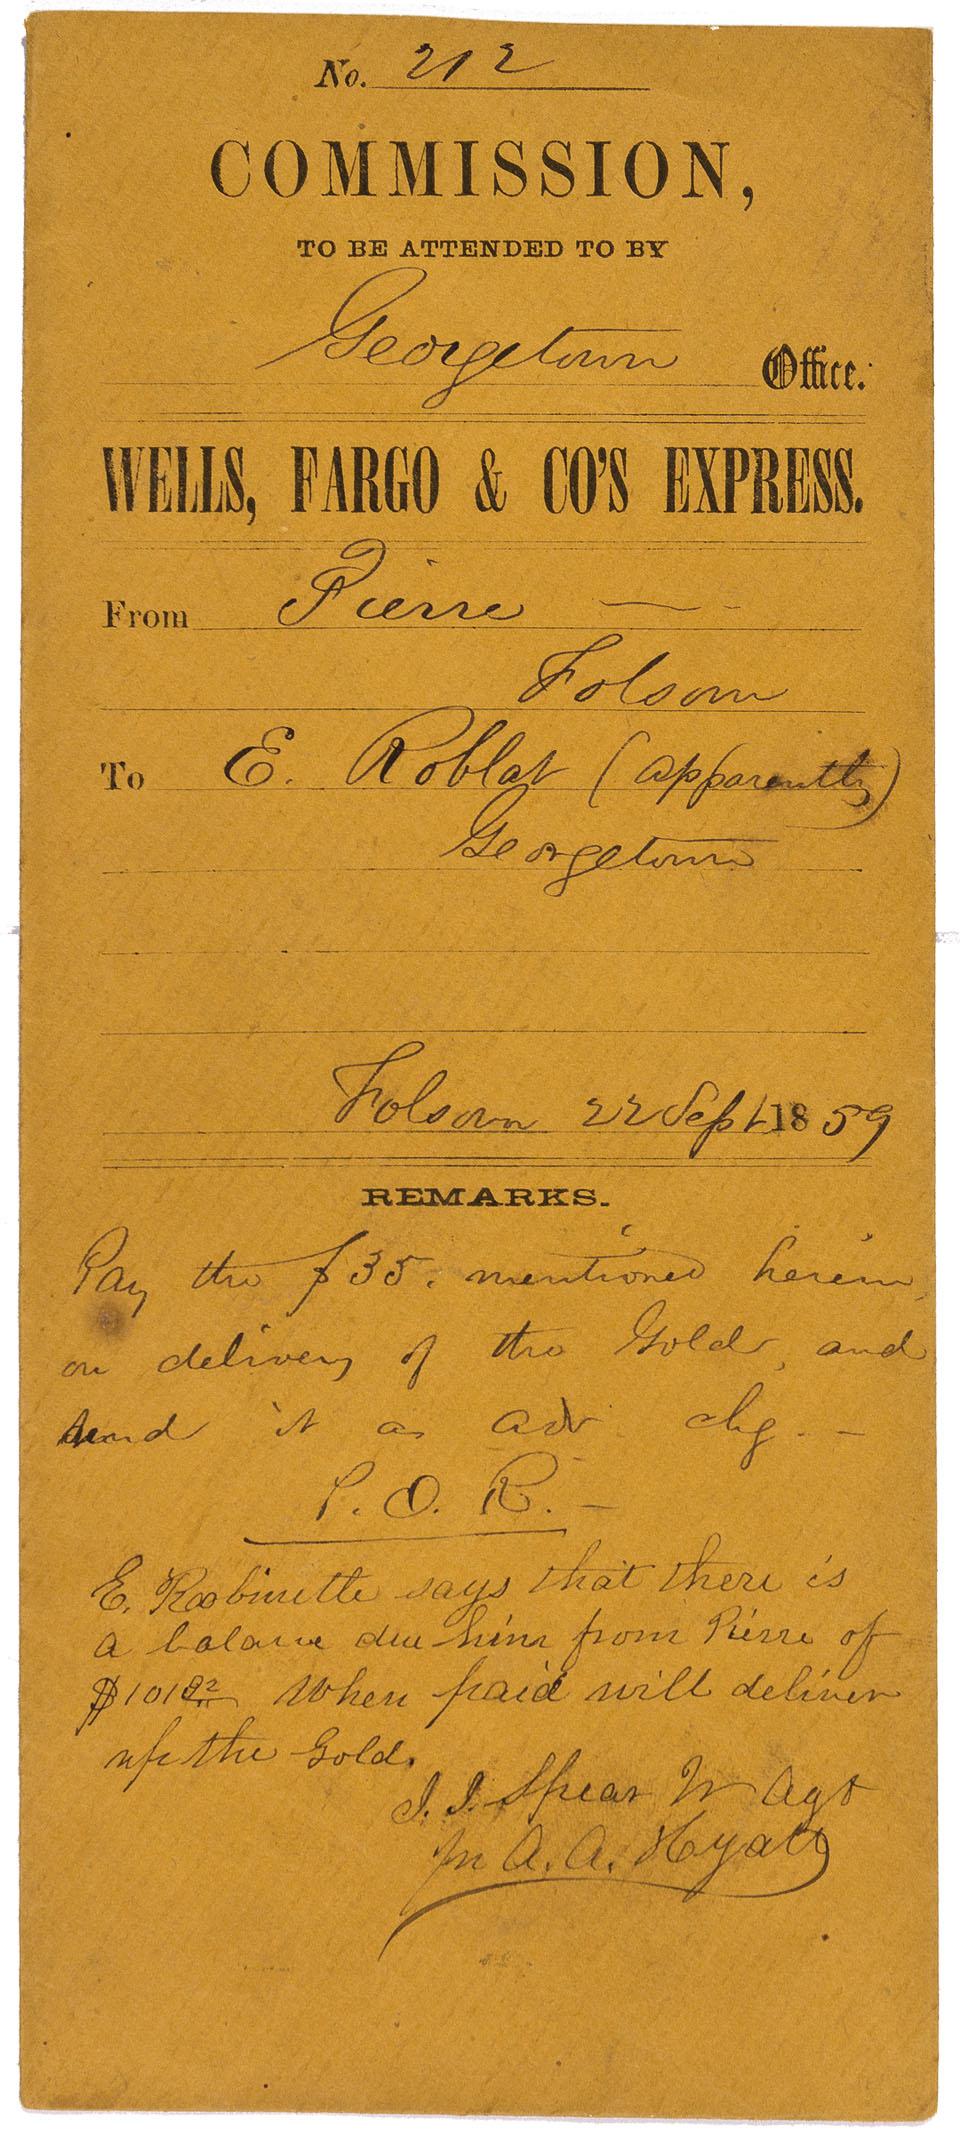 No. 212
COMMISSION,
TO BE ATTENDED TO BY
Georgetown Office.
WELLS, FARGO & CO'S EXPRESS.
From Pierre
Folsom
To E. Roblat (apparently)
Georgetown
Folsom 22 Sept 1859
REMARKS.
Pay the $35. mentioned herein,
on delivery of the Gold, and
send it as adv chg. -
P. O. R. -
E. Robinette says that there is
a balance due him from Pierre of
When paid will deliver
up the Gold.
J. J. Spear Jr Agt
A. A. Hyatt